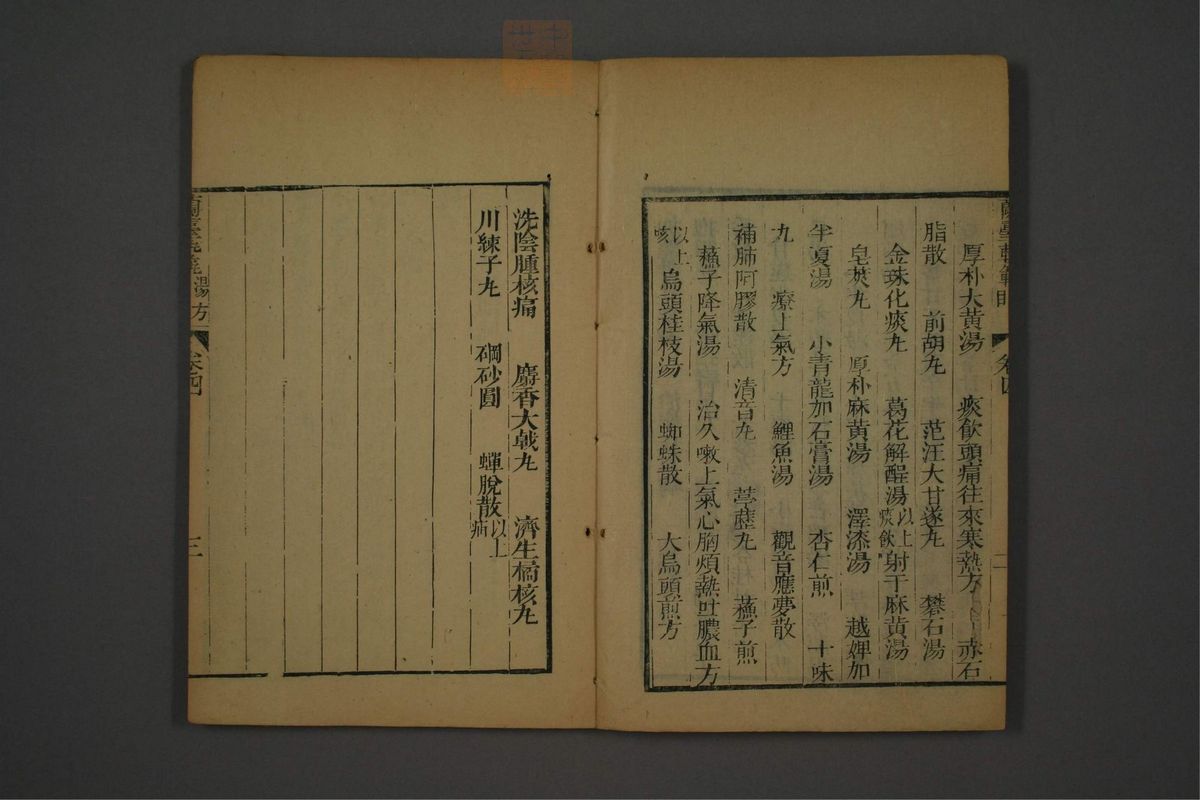 厚朴大黃湯　痰飲頭痛往來寒熱方　赤石
脂散　前胡丸　范汪大甘遂丸　礬石湯
金珠化痰丸　葛花解酲湯以上痰飲　射干麻黃湯
皂莢丸　厚朴麻黃湯　澤漆湯　越婢加
半夏湯　小青龍加石膏湯　杏仁煎　十味
丸　療上氣方　鯉魚湯　觀音應夢散
補肺阿膠散　清音丸　葶藶丸　蘓子煎
蘓子降氣湯　治久嗽上氣心胸煩熱吐膿血方
以上咳　烏頭桂枝湯　蜘蛛散　大烏頭煎方
洗陰腫核痛　麝香大戟丸　濟生橘核丸
川練子丸　碙砂圓　蟬脫散以上疝
卷四
二
三